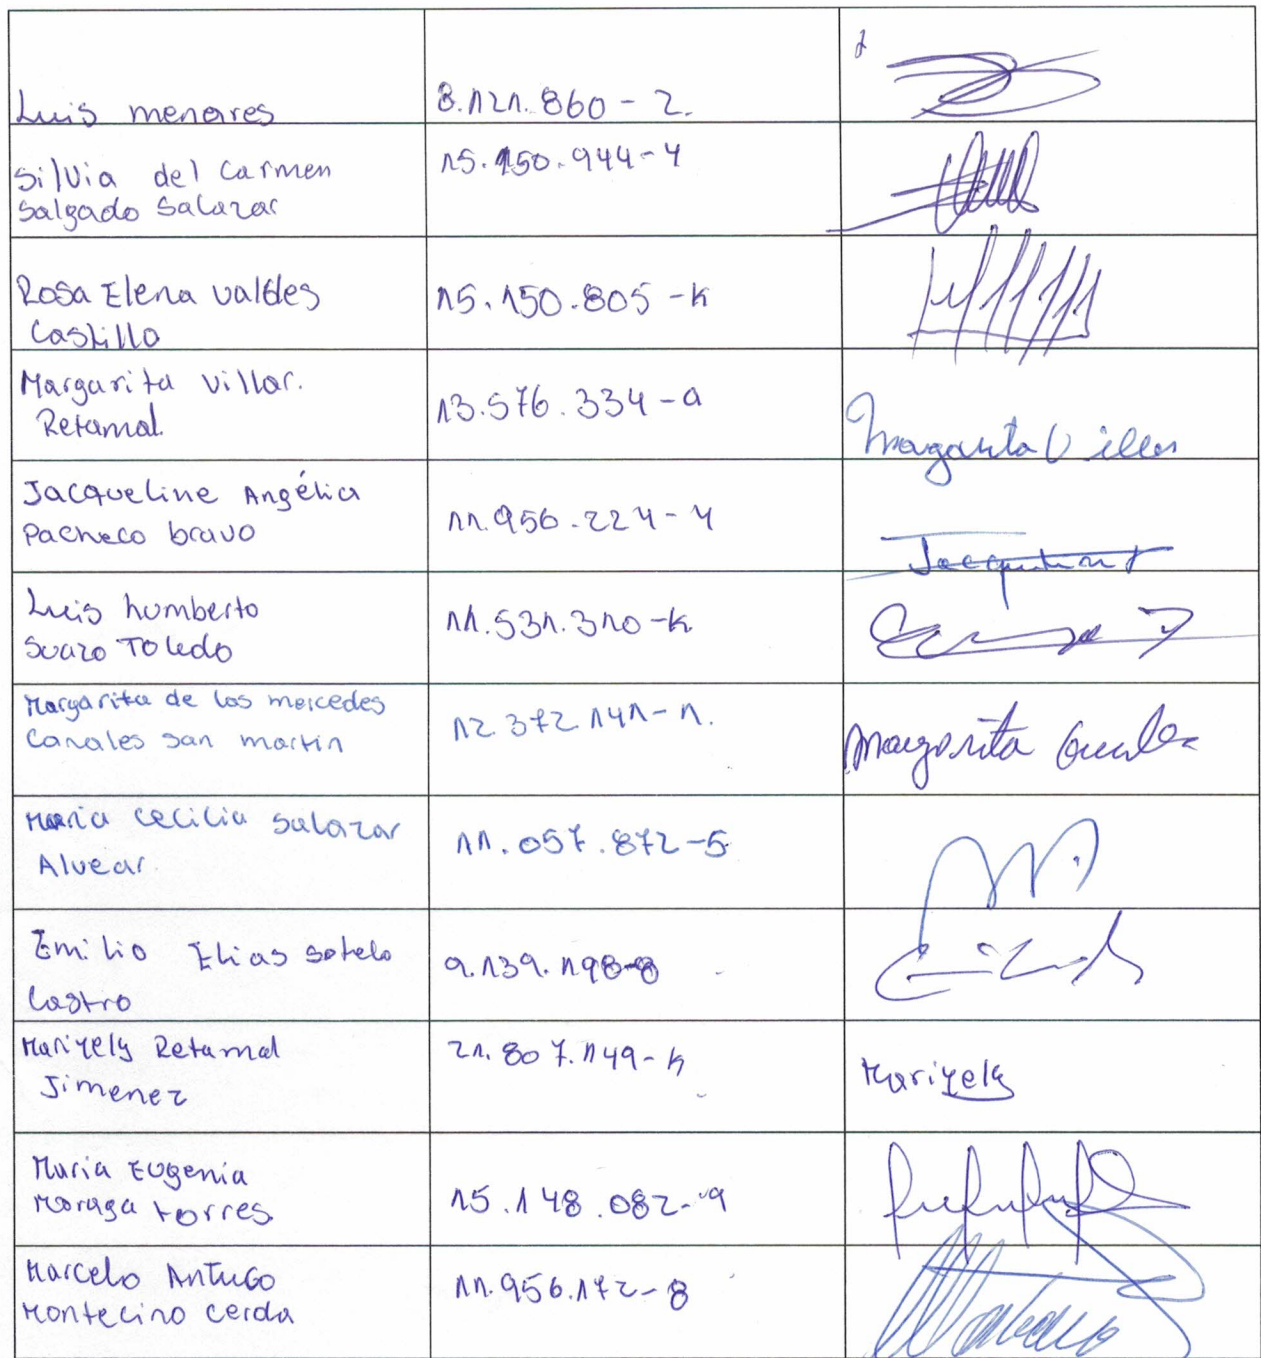 Luis menares
8.121.860-2.
Silvia del Carmen
Salgado Salazar
15.150.944-4
Rosa Elena Valdes
Castillo
15.150.805-K
Margarita Villar.
Retamal.
13.576.334-9
Margarita Villar
Jacqueline Angélica
Pacheco bravo
11.956.224-4
Luis humberto
Suazo Toledo
11.531.310-K
Margarita de los mercedes
Canales san martin
12.372.141-1.
Margarita Canales
Maria Cecilia Salazar
Alvear.
11.057.872-5
Emilio Elias Sotelo
Castro
9.139.198-8
Mariyely Retamal
Jimenez
21.807.149-K
Mariyely
Maria Eugenia
Moraga torres
15.148.082-9
Marcelo Antuco
Montecino Cerda
11.956.172-8